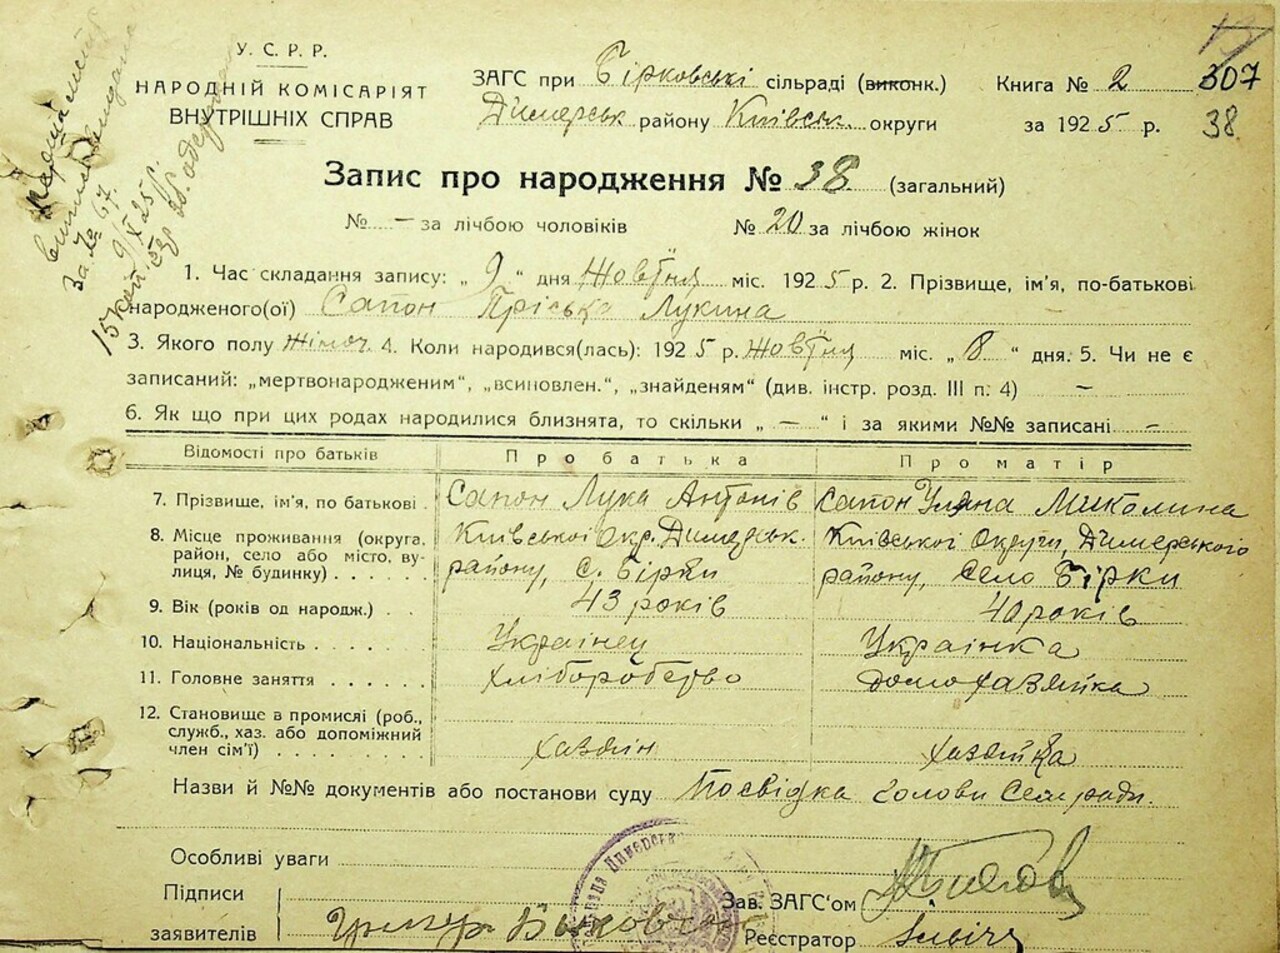 У. С. Р. Р.
НАРОДНІЙ КОМІСАРІЯТ
ВНУТРІШНІХ СПРАВ
ЗАГС при Бірковські сільраді (виконк.)
Димерськ району Київськ. округи
Книга № 2
за 1925 р.
13
307
38
Першій
видана
За № 67.
9/X 25 р.
15 коп.
Запис про народження № 38 (загальний)
№ — за лічбою чоловіків № 20 за лічбою жінок
1. Час складання запису: „ 9 “ дня Жовтня міс. 1925 р. 2. Прізвище, ім'я, по-батькові
народженого(ої) Сапон Пріська Лукина
3. Якого полу Жіноч. 4. Коли народився(лась): 1925 р. Жовтня міс. „ 8 “ дня. 5. Чи не є
записаний: „мертвонародженим“, „всиновлен.“, „знайденям“ (див. інстр. розд. III п. 4) —
6. Як що при цих родах народилися близнята, то скільки „ — “ і за якими №№ записані —
Відомості про батьків Про батька Про матір
7. Прізвище, ім'я, по батькові Сапон Лука Антонів Сапон Уляна Миколина
8. Місце проживання (округа, Київської Окр. Димерськ. Київської Округи, Димерського
район, село або місто, ву-
лиця, № будинку) . . . . . . району, с. Бірки району, Село Бірки
9. Вік (років од народж.) . . 43 років 40 років
10. Національність . . . . . . Українец Українка
11. Головне заняття . . . . . . хліборобство домохазяйка
12. Становище в промисяі (роб.,
служб., хаз. або допоміжний
член сім'ї) . . . . . . . . хазяїн хазяйка
Назви й №№ документів або постанови суду Посвідка голови Сельради.
Особливі уваги
Підписи
заявителів
Зав. ЗАГС'ом
Реєстратор